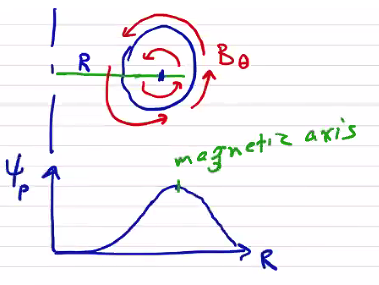 R
B_θ
magnetic axis
ψ_p
R